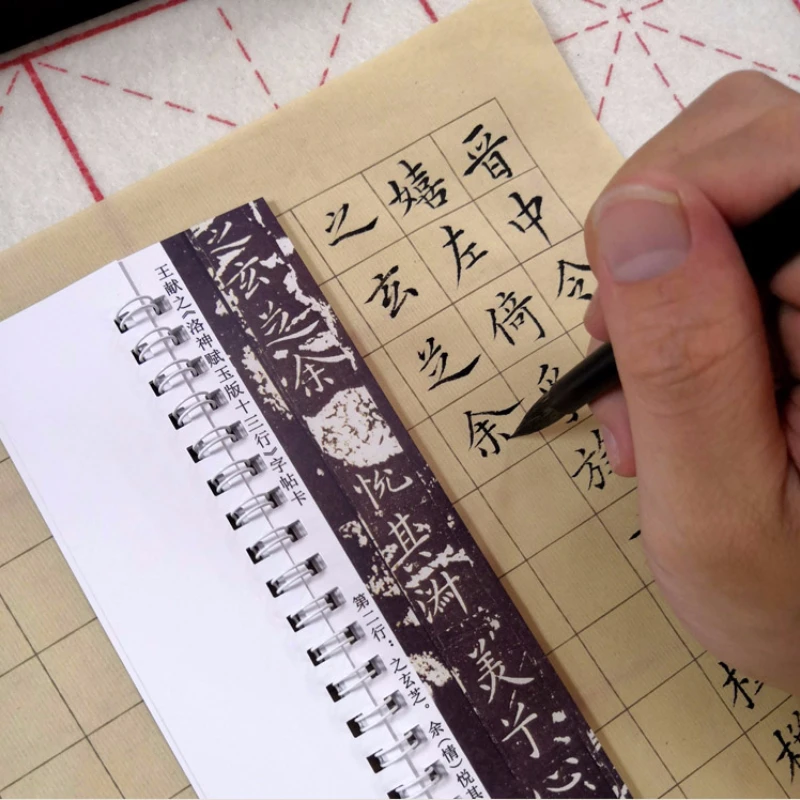 晋中令
嬉左倚采旄
之玄芝余
之玄芝余悦其淑美兮心
王献之《洛神赋玉版十三行》字帖卡
第二行：之玄芝。余（情）悦其